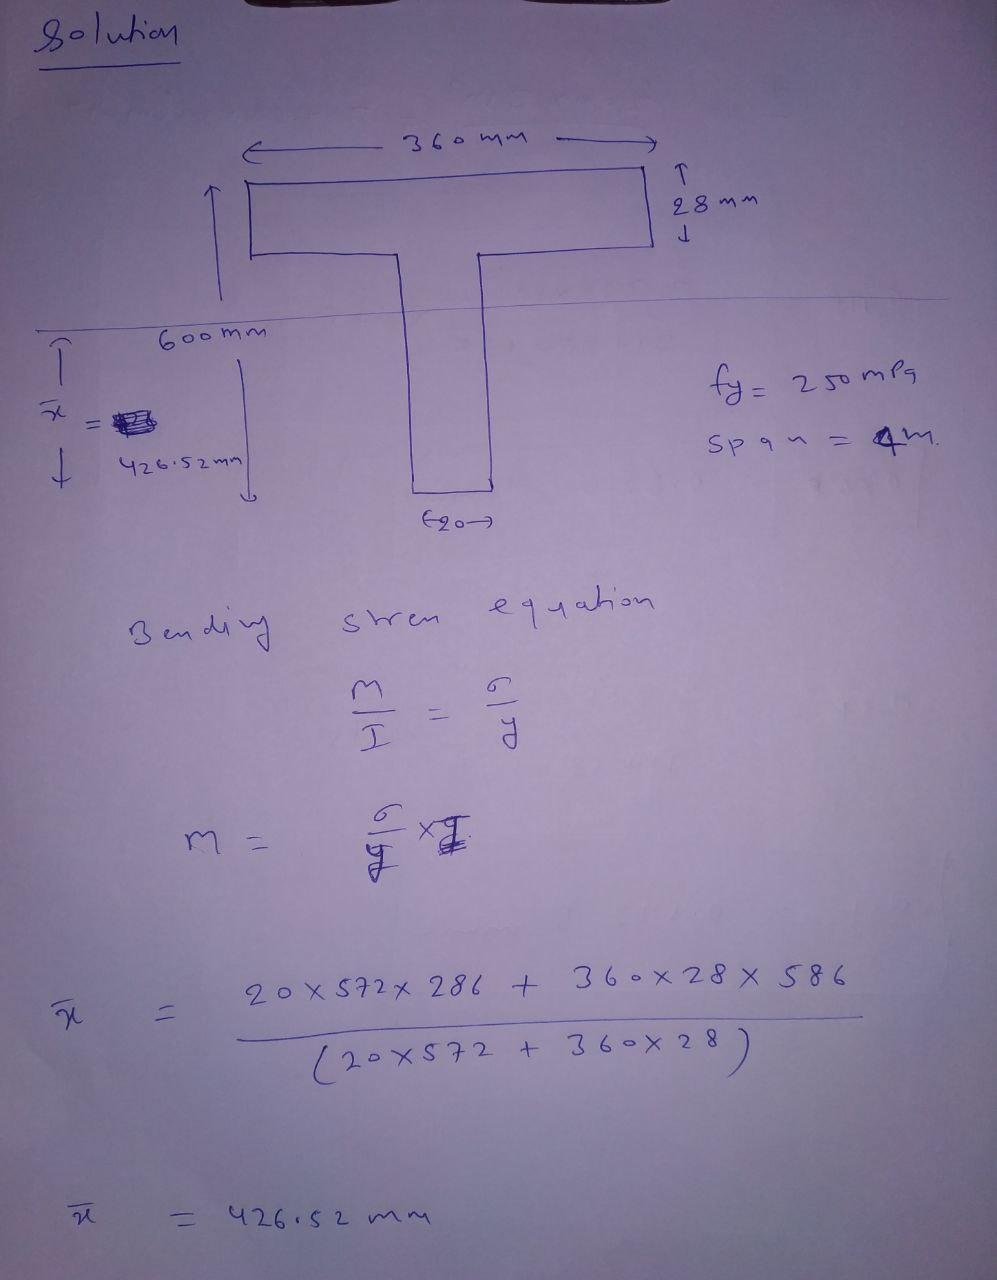 Solution
360 mm
28 mm
600 mm
x̄ =
426.52 mm
fy = 250 mPa
span = 4m.
20
Bending stren equation
M/I = σ/y
M = σ/y × I
x̄ = 20 × 572 × 286 + 360 × 28 × 586
(20 × 572 + 360 × 28)
x̄ = 426.52 mm